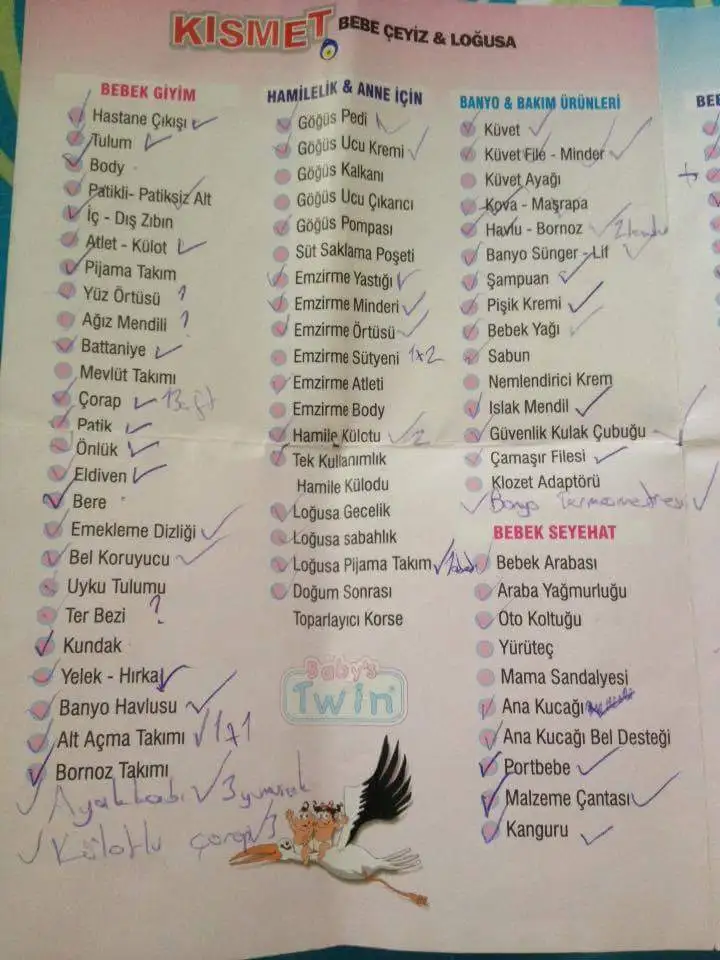 KISMET BEBE ÇEYİZ & LOĞUSA
BEBEK GİYİM
Hastane Çıkışı
Tulum
Body
Patikli- Patiksiz Alt
İç - Dış Zıbın
Atlet - Külot
Pijama Takım
Yüz Örtüsü ?
Ağız Mendili ?
Battaniye
Mevlüt Takımı
Çorap
Patik
Önlük
Eldiven
Bere
Emekleme Dizliği
Bel Koruyucu
Uyku Tulumu
Ter Bezi ?
Kundak
Yelek - Hırka
Banyo Havlusu
Alt Açma Takımı 1+1
Bornoz Takımı
Ayakkabı 3 yumuşak
Külotlu çorap 3
HAMİLELİK & ANNE İÇİN
Göğüs Pedi
Göğüs Ucu Kremi
Göğüs Kalkanı
Göğüs Ucu Çıkarıcı
Göğüs Pompası
Süt Saklama Poşeti
Emzirme Yastığı
Emzirme Minderi
Emzirme Örtüsü
Emzirme Sütyeni 1+2
Emzirme Atleti
Emzirme Body
Hamile Külotu 2
Tek Kullanımlık
Hamile Külodu
Loğusa Gecelik
Loğusa sabahlık
Loğusa Pijama Takım
Doğum Sonrası
Toparlayıcı Korse
Baby's
Twin
BANYO & BAKIM ÜRÜNLERİ
Küvet
Küvet File - Minder
Küvet Ayağı
Kova - Maşrapa
Havlu - Bornoz
Banyo Sünger - Lif
Şampuan
Pişik Kremi
Bebek Yağı
Sabun
Nemlendirici Krem
Islak Mendil
Güvenlik Kulak Çubuğu
Çamaşır Filesi
Klozet Adaptörü
Banyo Termometresi
BEBEK SEYEHAT
Bebek Arabası
Araba Yağmurluğu
Oto Koltuğu
Yürüteç
Mama Sandalyesi
Ana Kucağı
Ana Kucağı Bel Desteği
Portbebe
Malzeme Çantası
Kanguru